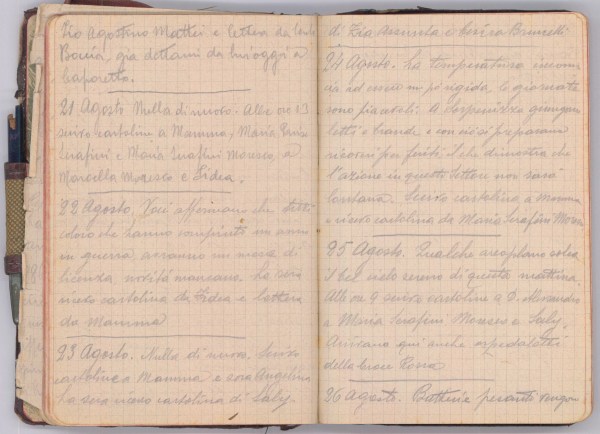 Zio Agostino Mattei e lettera da
Bovia, già dottami da lui oggi a
Caporetto.
21 Agosto Nulla di nuovo. Alle ore 13
scrivo cartolina a Mamma, Maria
Serafini e Maria Serafini Moresco, a
Marcella Moresco e Fidea.
22 Agosto. Voci affermano che tutti
coloro che hanno compiuto un anno
in guerra avranno un mese di
licenza, novità mancano. La sera
ricevo cartolina da Fidea e lettera
da Mamma
23 Agosto. Nulla di nuovo. Scrivo
cartolina a Mamma e sora Angelina
La sera ricevo cartolina di Saly.
di Zia Assunta e Brunelli
24 Agosto. La temperatura incomin
cia ad essere un pò rigida, le giornate
sono piacevoli. A Serpenizza giungono
letti e brande e con ciò si preparano
ricoveri per feriti. Il che dimostra che
l'azione in questo settore non sarà
lontana. Scrivo cartolina a Mamma
e ricevo cartolina da Maria Serafini
25 Agosto. Qualche areoplano solca
il bel cielo sereno di questa mattina.
Alle ore 9 scrivo cartoline a D. Alessandro
e Maria Serafini Moresco e Saly.
Arrivano qui anche ospedaletti
della Croce Rossa
26 Agosto. Batterie pesanti vengon